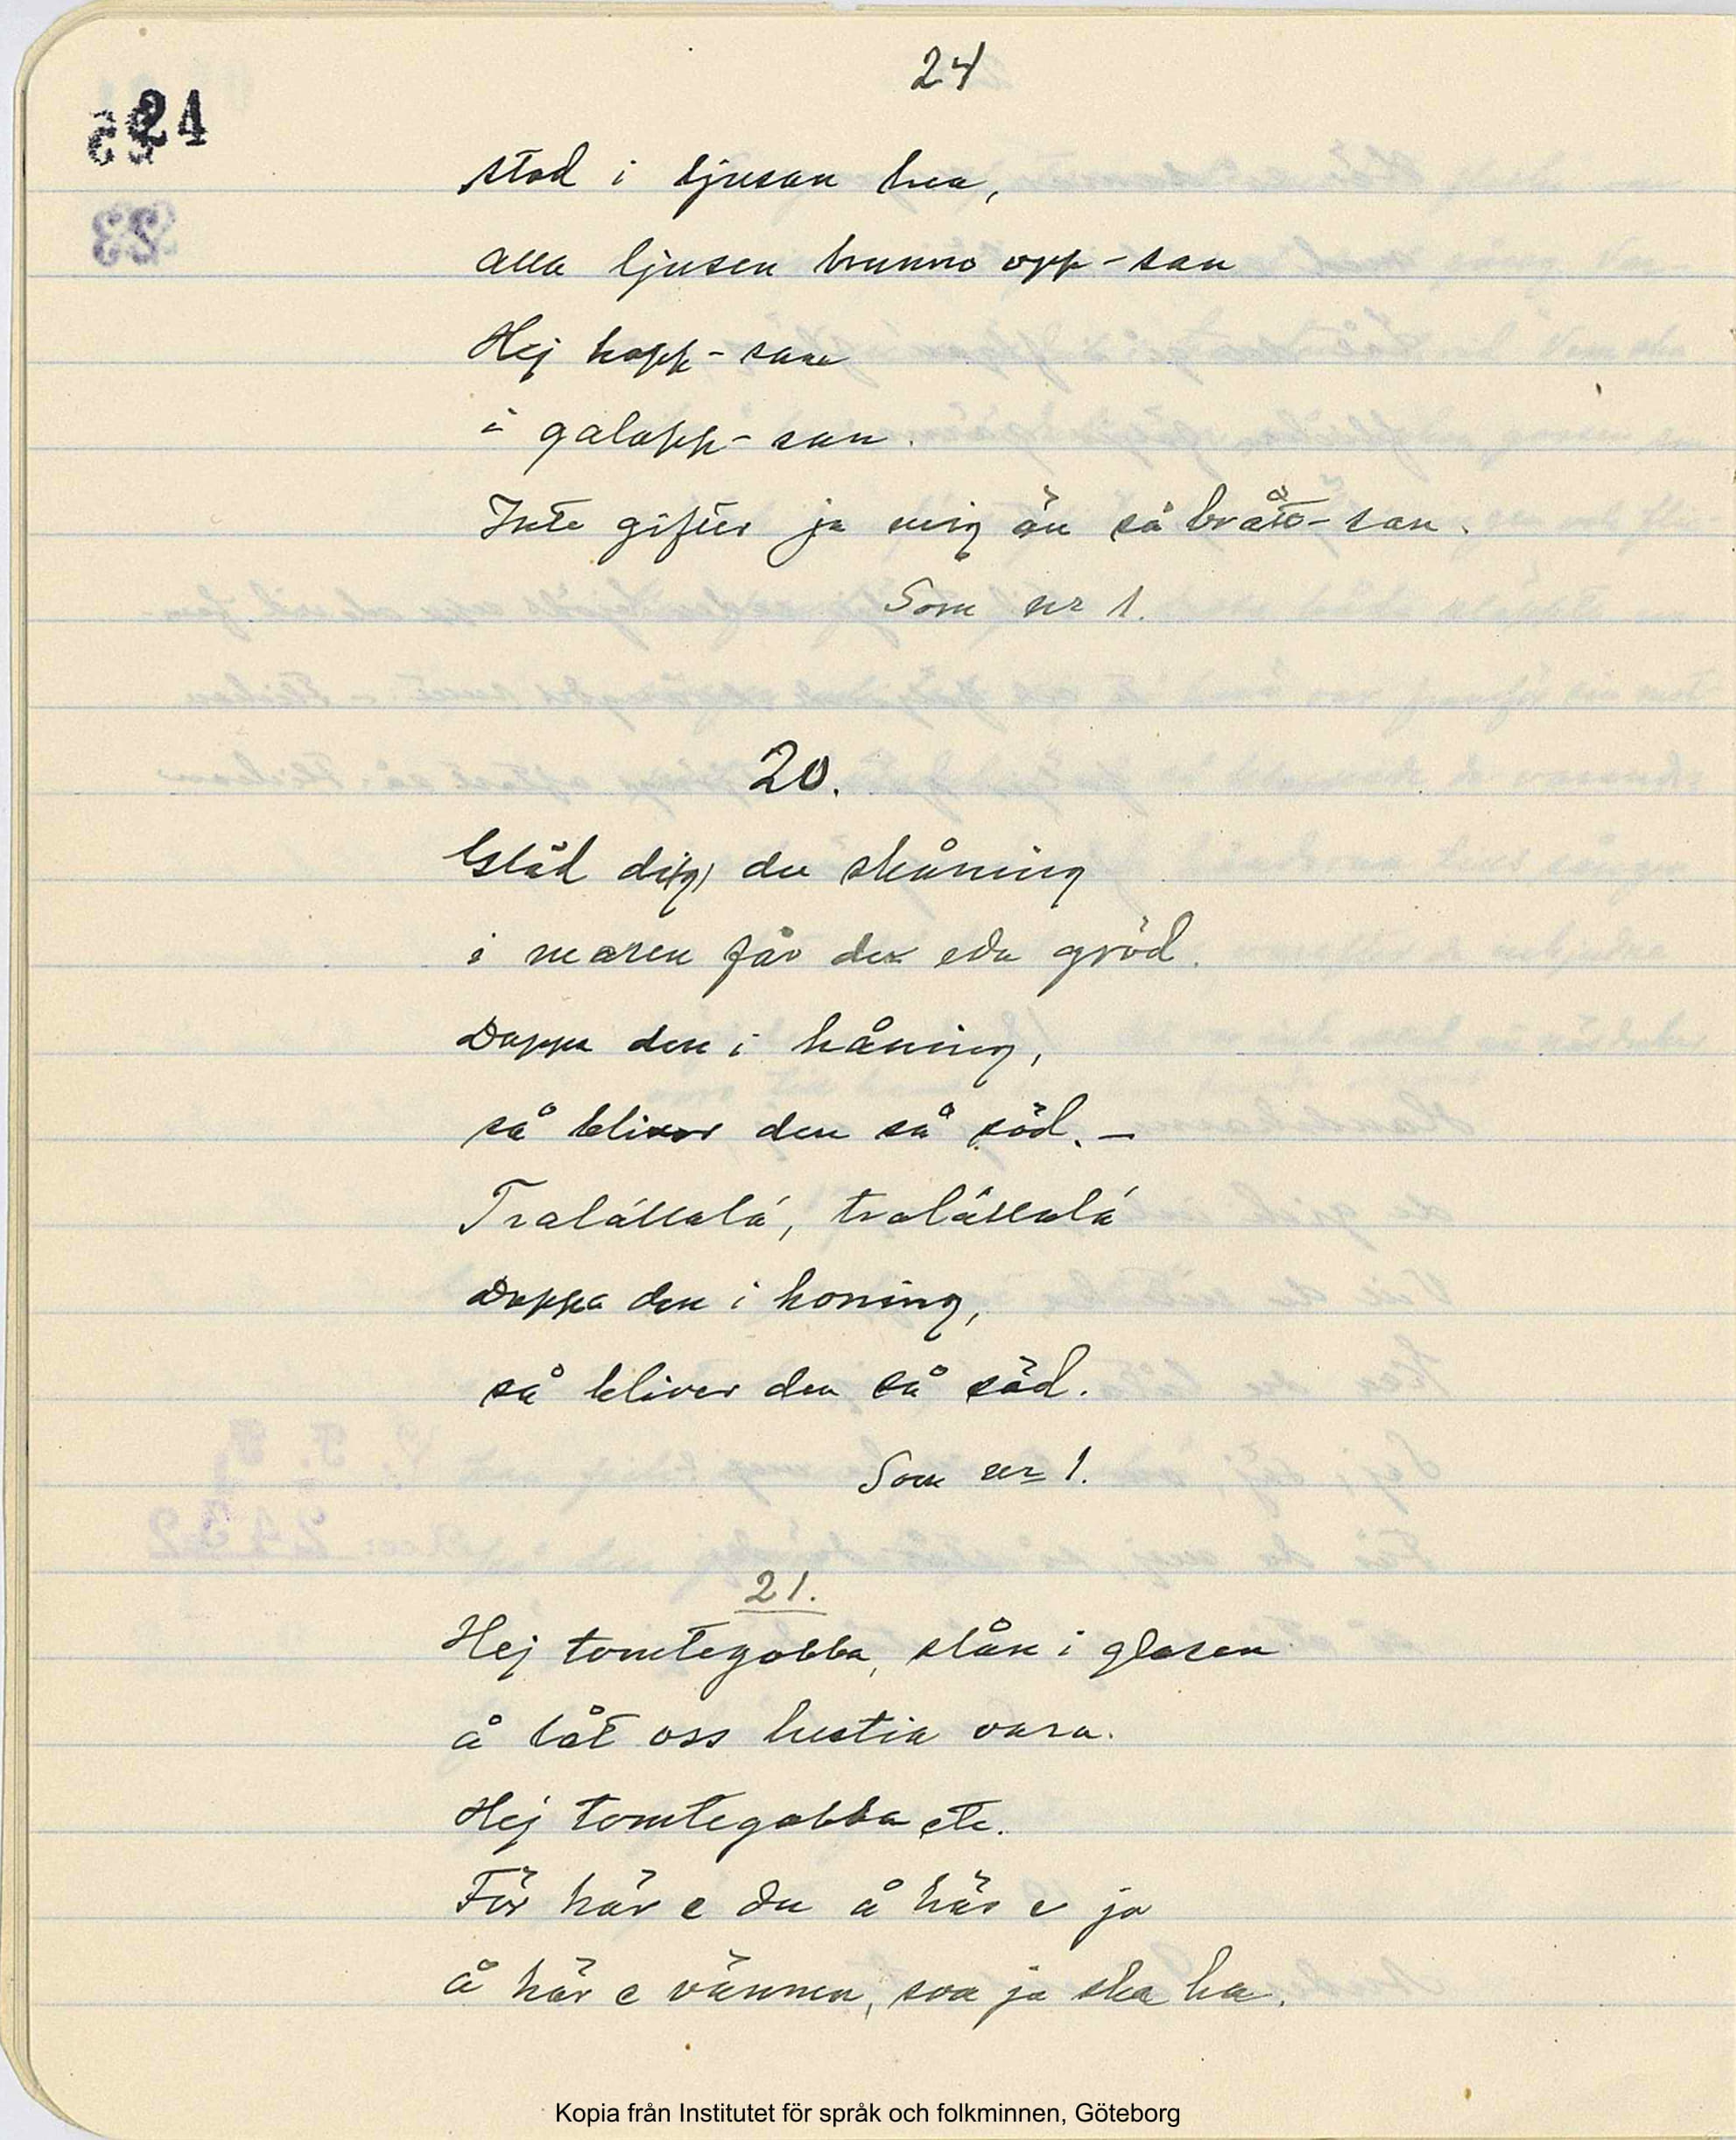 24
24
stod i ljusan loa,
alla ljusen brunno opp-san
Hej hopp-san
i galopp-san.
Inte gifter ja mig än så brått-san.
Som nr 1.
20.
Gläd di(g) du skåning
i maren får du eda gröd.
Doppa den i håning,
så bliver den så söd. –
Tralállalá, tralállalá
Doppa den i honing,
så bliver den så söd.
Som nr 1.
21.
Hej tomtegobba, slån i glasen
å låt oss lustia vara.
Hej tomtegobba etc.
För här e du å här e ja
å här e vännen, som ja ska ha.
Kopia från Institutet för språk och folkminnen, Göteborg